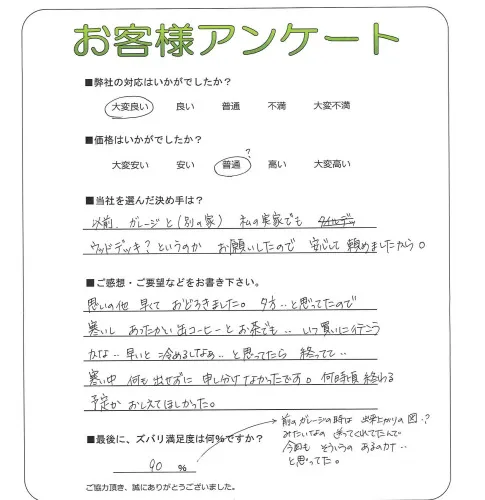 お客様アンケート
■弊社の対応はいかがでしたか?
大変良い 良い 普通 不満 大変不満
■価格はいかがでしたか?
?
大変安い 安い 普通 高い 大変高い
■当社を選んだ決め手は?
以前、ガレージと(別の家) 私の実家でも
ウッドデッキ?というのか お願いしたので 安心して 頼めましたから。
■ご感想・ご要望などをお書き下さい。
思いの他 早くて おどろきました。夕方..と思ってたので
寒いし あったかい缶コーヒーとお茶でも.. いつ買いに行こう
かな.. 早いと 冷めるしなぁ.. と思ってたら 終ってて..
寒い中 何も出せずに 申し分けなかったです。何時頃 終わる
予定か おしえてほしかった。
■最後に、ズバリ満足度は何%ですか?
90 %
前のガレージの時は 出来上がりの図..?
みたいなの 送ってくれてたんで
今回も そういうの あるのカナ..
と思ってた。
ご協力頂き、誠にありがとうございました。